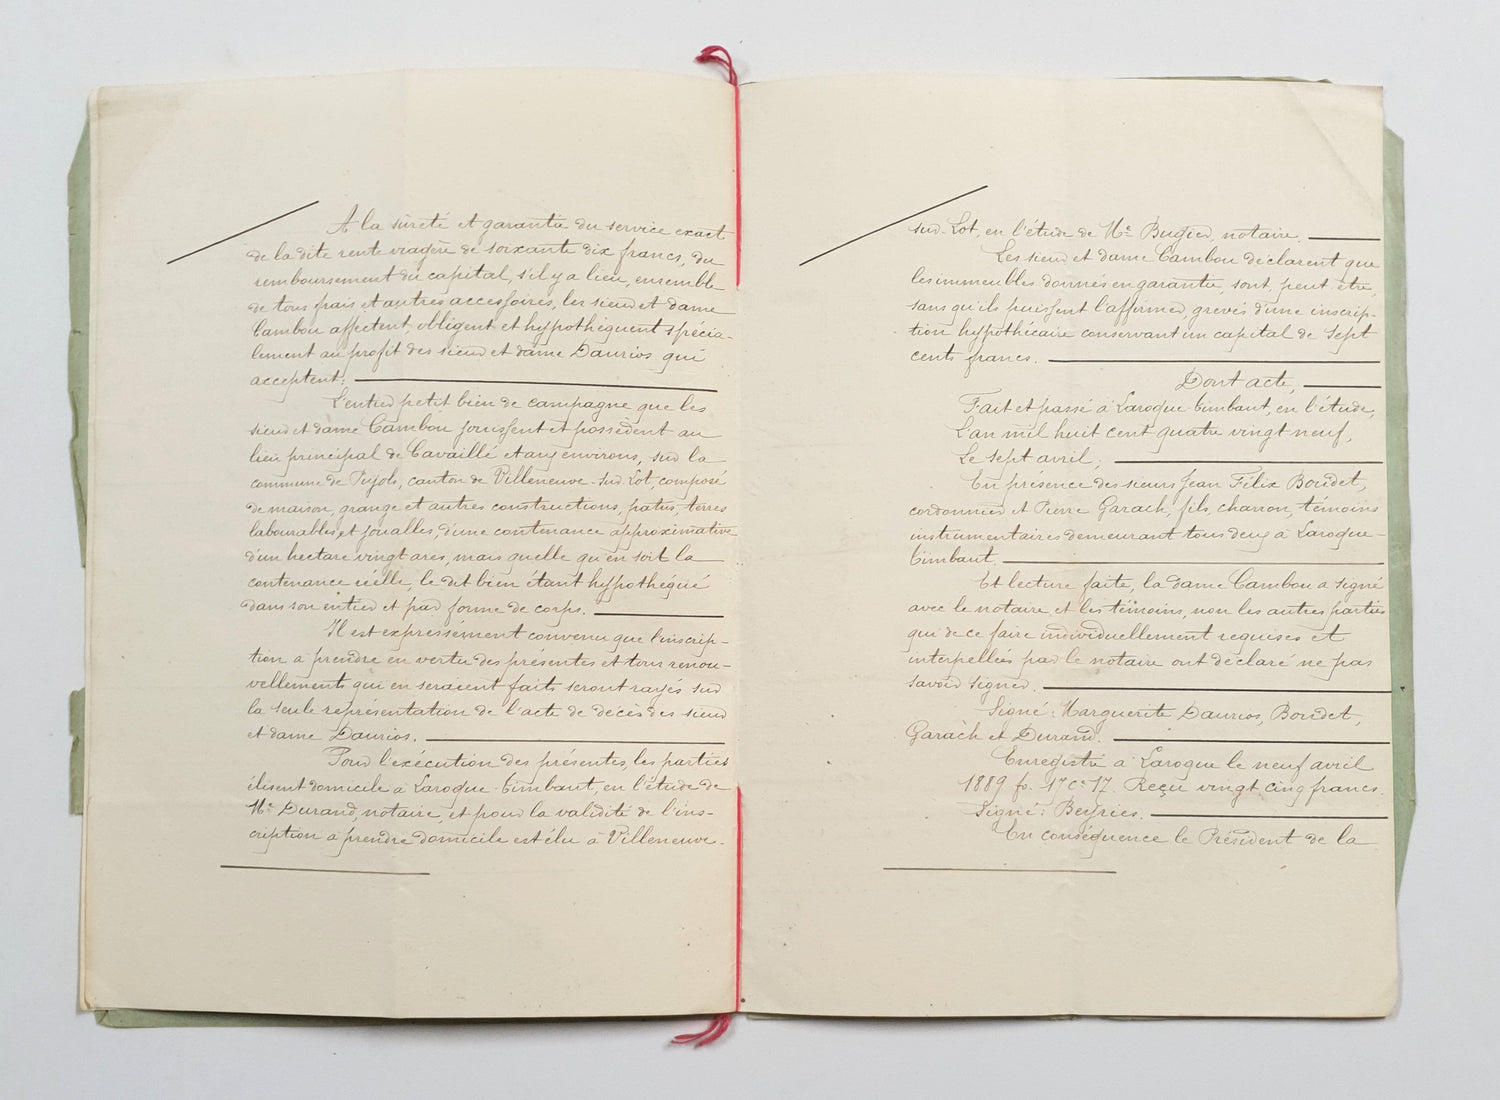 A la sûreté et garantie du service exact
de la dite rente viagère de soixante dix francs, du
remboursement du capital, s'il y a lieu, ensemble
de tous frais et autres accessoires, les sieur et dame
Cambou affectent, obligent et hypothèquent spécia-
lement au profit des sieur et dame Daurios qui
acceptent:
L'entier petit bien de campagne que les
sieur et dame Cambou jouissent et possèdent au
lieu principal de Cavaillé et aux environs, sur la
commune de Pujols, canton de Villeneuve-sur-Lot, composé
de maison, grange et autres constructions, patus, terres
labourables, et joualles, d'une contenance approximative
d'un hectare vingt ares, mais quelle qu'en soit la
contenance réelle, le dit bien étant hypothéqué
dans son entier et par forme de corps.
Il est expressément convenu que l'inscrip-
tion à prendre en vertu des présentes et tous renou-
vellements qui en seraient faits seront rayés sur
la seule représentation de l'acte de décès des sieur
et dame Daurios.
Pour l'exécution des présentes, les parties
élisent domicile à Laroque-Timbaut, en l'étude de
Me Durand, notaire, et pour la validité de l'ins-
cription à prendre domicile est élu à Villeneuve-
sur-Lot, en l'étude de Me Bugier, notaire.
Les sieur et dame Cambou déclarent que
les immeubles donnés en garantie, sont, peut-être,
sans qu'ils puissent l'affirmer, grevés d'une inscrip-
tion hypothécaire conservant un capital de sept
cents francs.
Dont acte,
Fait et passé à Laroque-Timbaut, en l'étude,
L'an mil huit cent quatre vingt neuf,
Le sept avril;
En présence des sieurs Jean Félix Boudet,
cordonnier et Pierre Garach, fils, charron, témoins
instrumentaires demeurant tous deux à Laroque-
Timbaut.
Et lecture faite, la dame Cambou a signé
avec le notaire et les témoins, non les autres parties
qui de ce faire individuellement requises et
interpellées par le notaire ont déclaré ne pas
savoir signer.
Signé: Marguerite Daurios, Boudet,
Garach et Durand.
Enregistré à Laroque le neuf avril
1889 fo. 17 c. 17. Reçu vingt cinq francs.
Signé: Beyries.
En conséquence le Président de la